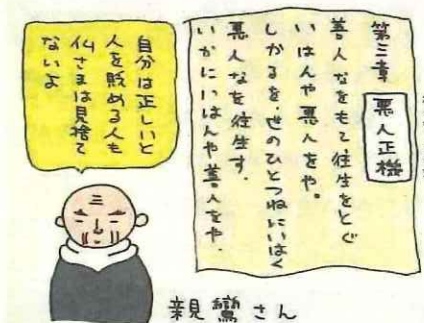 第三章
悪人正機
善人なをもて往生をとぐ
いはんや悪人をや。
しかるを、世のひとつねにいはく
悪人なを往生す、
いかにいはんや善人をや、
自分は正しいと
人を貶める人も
仏さまは見捨て
ないよ
親鸞さん